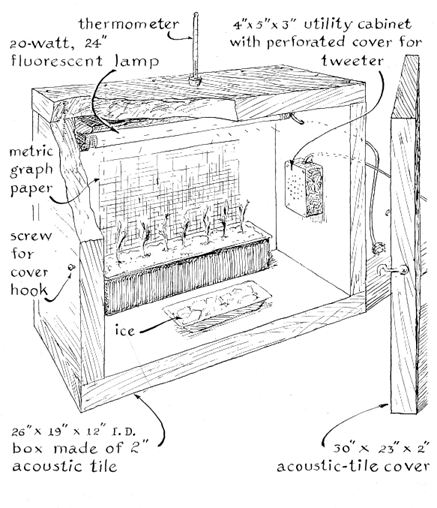 thermometer
20-watt, 24"
fluorescent lamp
4"x 5"x 3" utility cabinet
with perforated cover for
tweeter
metric
graph
paper
screw
for
cover
hook
ice
26" x 19" x 12" I.D.
box made of 2"
acoustic tile
30" x 23" x 2"
acoustic-tile cover